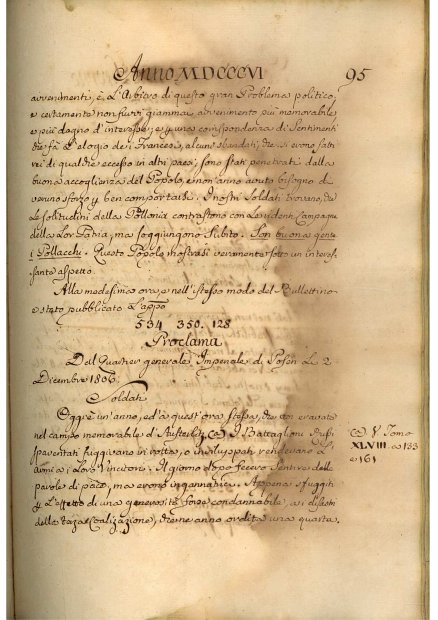 Anno MDCCCVI 95
avvenimenti, è L'Arbitro di questo gran Problema politico,
e certamente non furvi giammai avvenimenti più memorabile
e più degno d'interesse; e una corrispondenza di Sentimenti
che fà L'elogio de i Francesi, alcuni sbandati, che si erono fatti
rei di qualche eccesso in altri paesi, sono stati penetrati dalla
buona accoglienza del Popolo, e non anno avuto bisogno di
veruno sforzo p ben comportarsi. I nostri Soldati trovano, che
Le solitudini della Pollonia contrastono con Le ridenti Campagne
della Lor Patria, ma soggiungono Subito. Son buona gente
i Pollacchi. Questo Popolo mostrasi veramente sotto un interes-
sante aspetto.
Alla medesima ora e nell'istesso modo del Bullettino
è stato pubblicato L'app.
534 350. 128
Proclama
Dal Quartier generale Imperiale di Posen Li 2
Dicembre 1806.
Soldati
Oggi è un'anno, ed a quest'ora stessa, che voi eravate
nel campo memorabile d'Austerlitz I Battaglioni Russi
spaventati fuggivano in rotta, o inviluppati rendevano L'
armi a i Loro Vincitori. Il giorno dopo fecero Sentire delle
parole di pace, ma erono ingannatrici. Appena sfuggiti
p L'effetto di una generosità forse condannabile, a i disastri
della terza Coalizione, che ne anno ordita una quarta.
V Tomo
XLVIII a 133
e 161